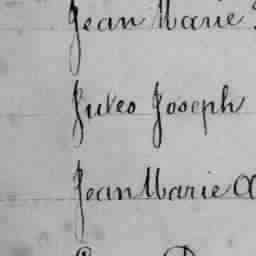 Jean Marie
Jules Joseph
Jean Marie